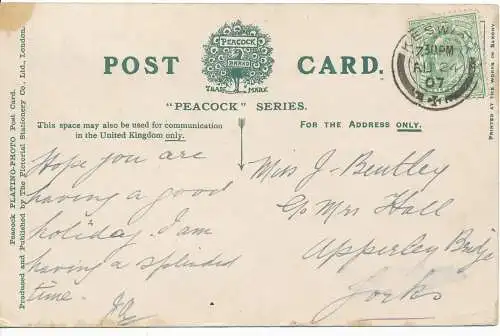 POST CARD.
PEACOCK
BRAND
TRADE MARK
"PEACOCK" SERIES.
This space may also be used for communication
in the United Kingdom only.
FOR THE ADDRESS ONLY.
Hope you are
having a good
holiday. I am
having a splendid
time.
Miss J. Bentley
c/o Mrs Hall
Apperley Bridge
Yorks
KESWICK
7.30PM
AU 24
07
Peacock PLATINO-PHOTO Post Card.
Produced and Published by The Pictorial Stationery Co., Ltd., London.
PRINTED AT THE WORKS IN SAXONY.